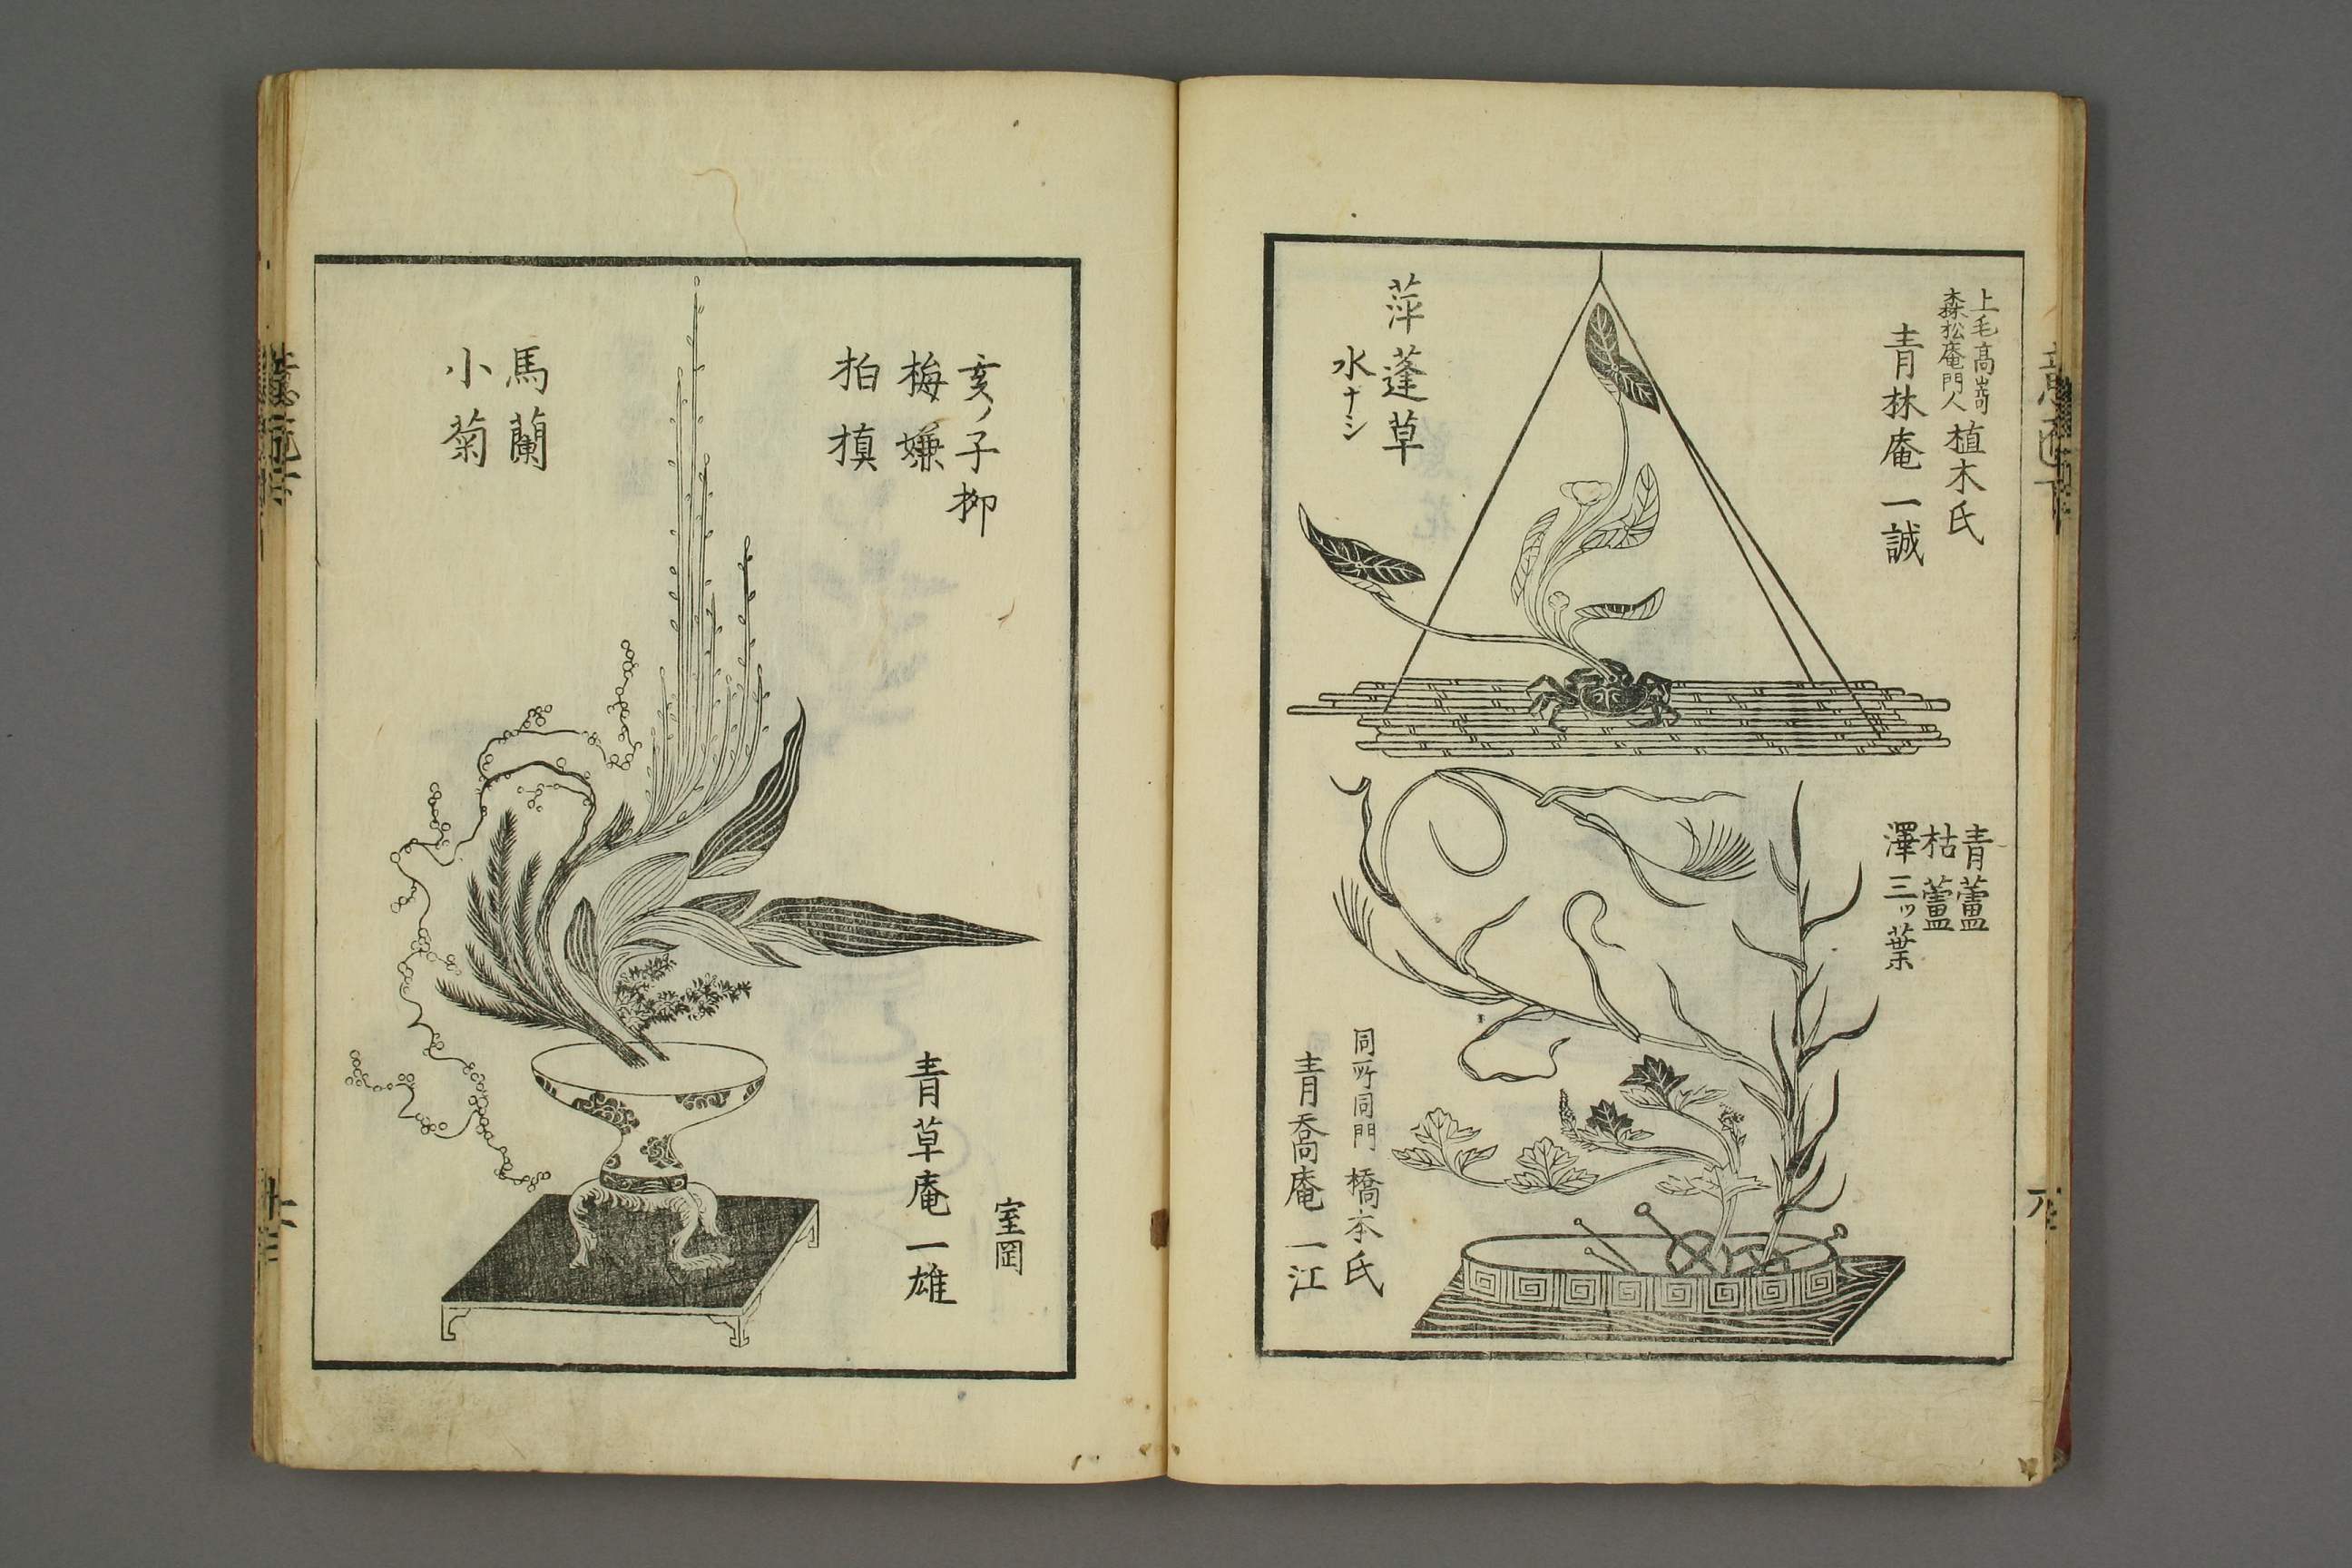 上毛高嵜
森松庵門人
植木氏
青林庵一誠
萍蓬草
水ナシ
青蘆
枯蘆
澤三ッ葉
同所同門
橋本氏
青喬庵一江
亥ノ子柳
梅嫌
柏槙
馬蘭
小菊
室岡
青草庵一雄